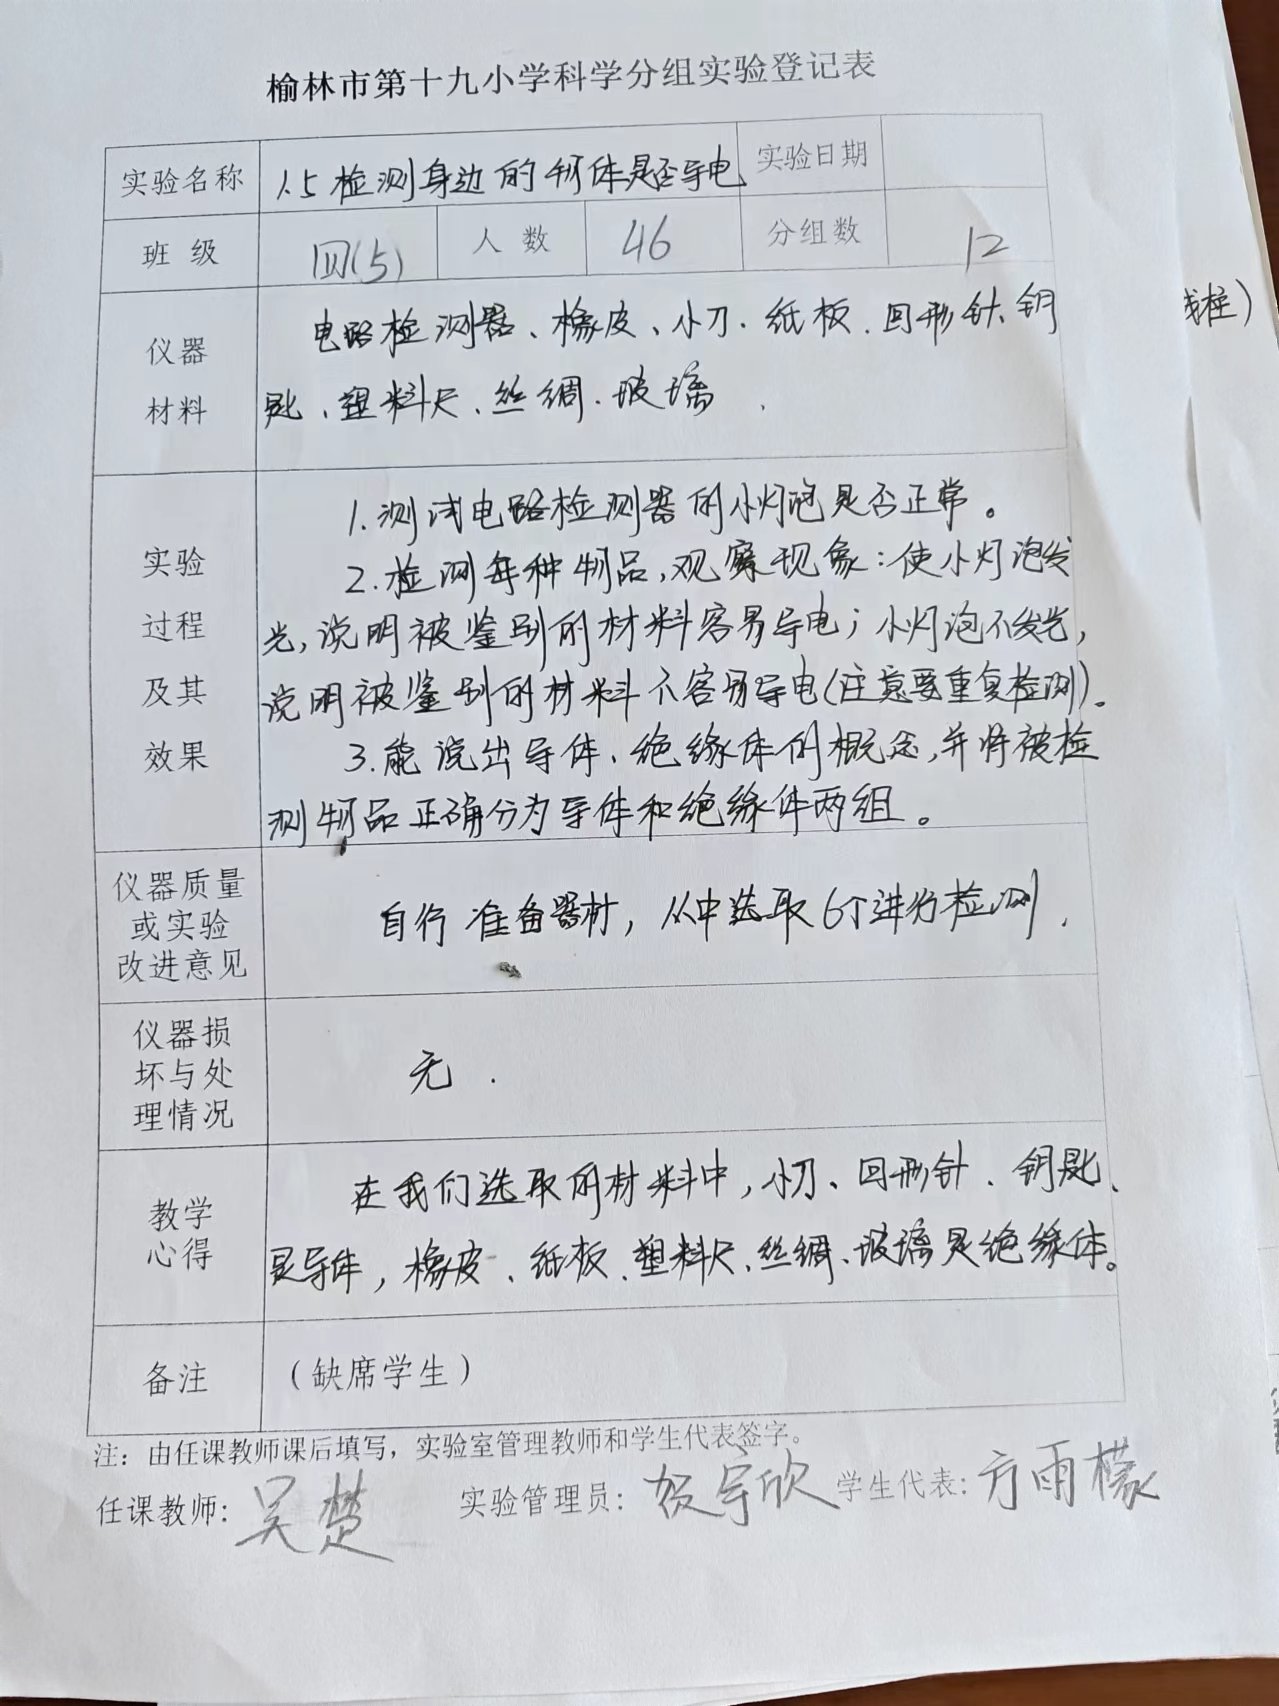 榆林市第十九小学科学分组实验登记表
实验名称 1.5检测身边的物体是否导电 实验日期
班 级 四(5) 人 数 46 分组数 12
电路检测器、橡皮、小刀、纸板、回形针、钥
仪器
材料
匙、塑料尺、丝绸、玻璃
线柱）
1.测试电路检测器的小灯泡是否正常。
实验
过程
及其
效果
2.检测每种物品,观察现象:使小灯泡发
光,说明被鉴别的材料容易导电;小灯泡不发光,
说明被鉴别的材料不容易导电(注意要重复检测)。
3.能说出导体、绝缘体的概念,并将被检
测物品正确分为导体和绝缘体两组。
仪器质量
或实验
改进意见
自行准备器材,从中选取6个进行检测.
仪器损
坏与处
理情况
无.
教学
心得
在我们选取的材料中,小刀、回形针、钥匙、
是导体,橡皮、纸板、塑料尺、丝绸、玻璃是绝缘体。
备注 （缺席学生）
注：由任课教师课后填写，实验室管理教师和学生代表签字。
任课教师: 吴楚 实验管理员: 贺宇欣 学生代表: 方雨檬